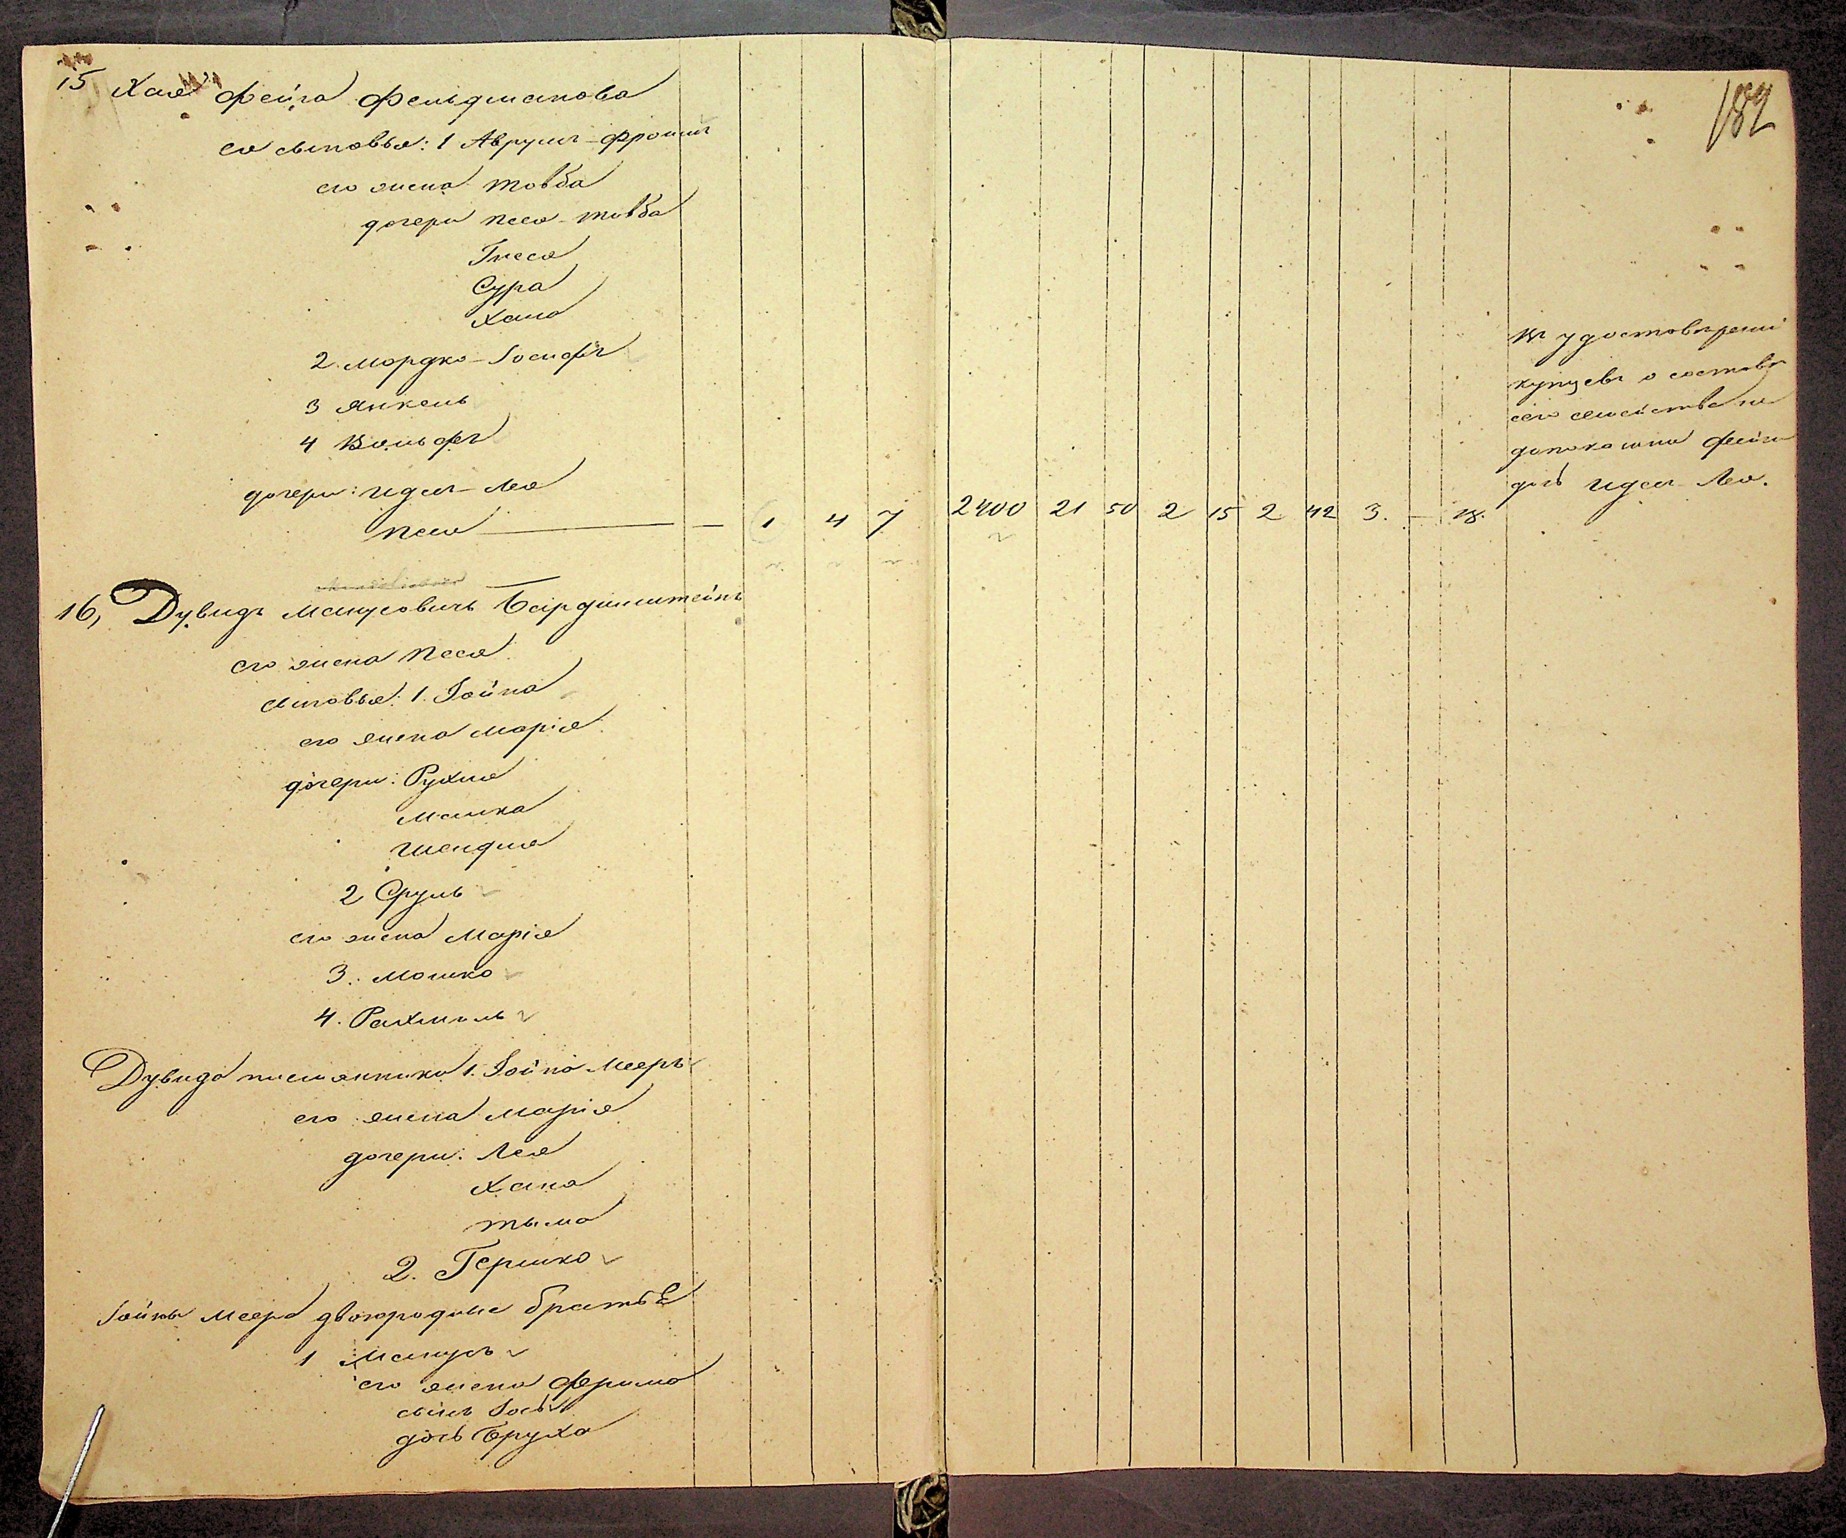 15 Хая Фейга Фельдманова
ея сыновья: 1 Аврумъ-Фроимъ
его жена Товба
дочери Песя-Товба
Гнеся
Сура
Хана
2 Мордко-Іосифъ
3 Янкель
4 Вольфъ
дочери: Идесъ-Лея
Песя — — 1 4 7 2400 21 50 2 15 2 42 3. —
182
Въ удостовѣреніи
купцевъ о составѣ
сего семейства не
показана Фейги
дочь Идесъ Лея.
16, Дувидъ Манусовичъ Бардинштейнъ
его жена Песя
сыновья: 1. Іойна
его жена Марія
дочери: Рухля
Малка
Шендля
2 Сруль
его жена Марія
3. Мошко
4. Рахмиль
Дувида племянники 1. Іойна Мееръ
его жена Марія
дочери: Лея
Хана
2. Гершко
Іойны Меера двоюродные братья
1 Манусъ
его жена Фрима
сынъ Іось
дочь Бруха